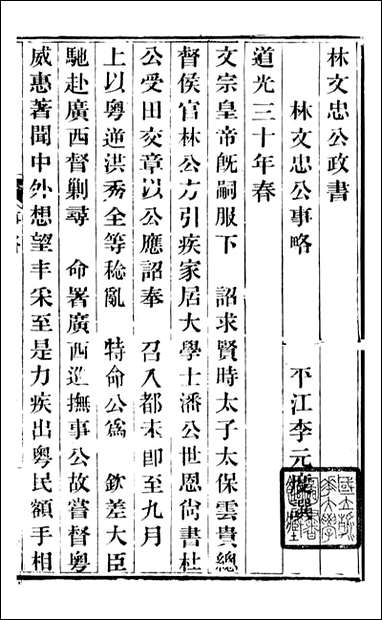 林文忠公政書
林文忠公事略 平江李元度撰
道光三十年春
文宗皇帝旣嗣服下 詔求賢時太子太保雲貴總
督侯官林公方引疾家居大學士潘公世恩尙書杜
公受田交章以公應詔奉 召入都未卽至九月
上以粵逆洪秀全等稔亂 特命公爲 欽差大臣
馳赴廣西督剿尋 命署廣西巡撫事公故嘗督粵
威惠著聞中外想望丰采至是力疾出粵民額手相